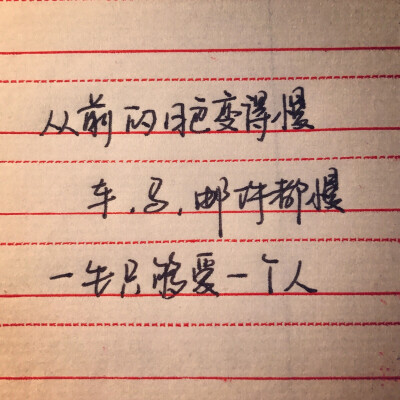 从前的日色变得慢
车,马,邮件都慢
一生只够爱一个人